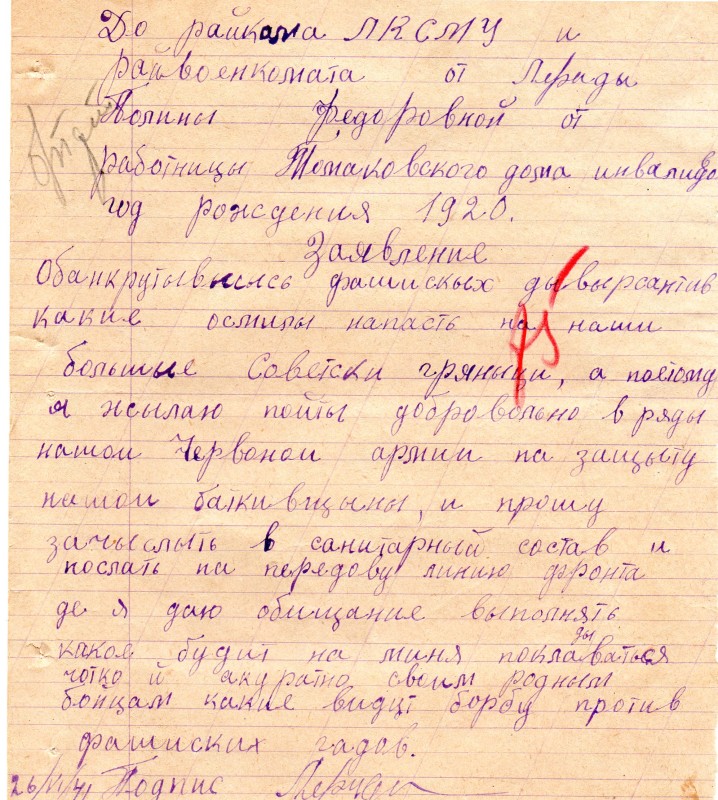 До райкома ЛКСМУ и
райвоенкомата от
Полины Федоровной от
работницы Томаковского дома инвалидов
год рождения 1920.
Заявление
Обанкрутывысясь фашиських дывырсантив
какие осмилы напасть на наши
большые Советски гряныци, а поетому
я жылаю пойты добровольно в ряды
нашои Червонои армии на защыту
нашои батькивщыны, и прошу
зачыслыть в санитарный состав и
послать на передову линию фронта
де я даю обищание выполнять
какое будит на миня покладываться
чотко й акуратно своим родным
бойцам какие видут борбу против
фашиских гадов.
Подпис